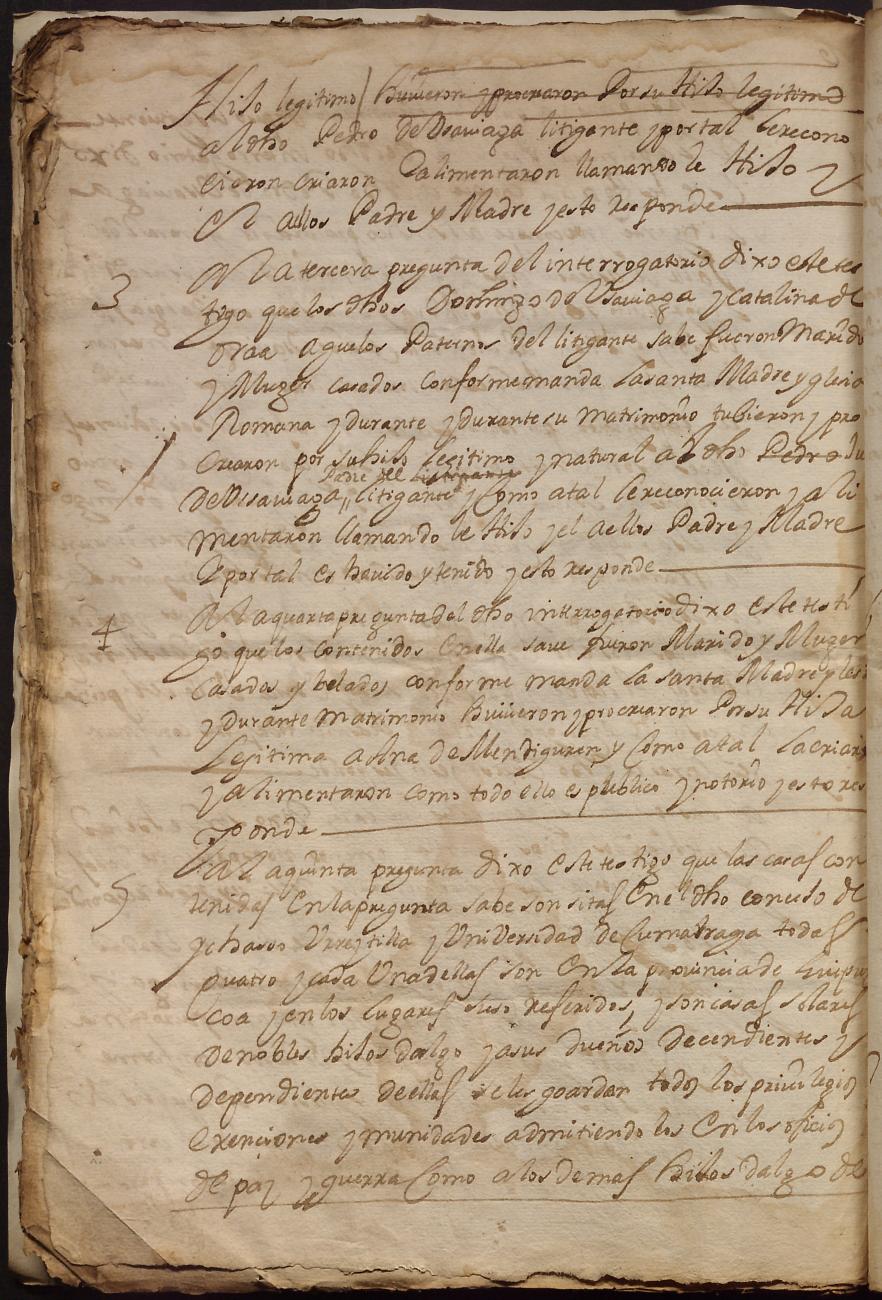 Hijo legitimo / Huuieron y procrearon Por su Hijo legitimo
al dho Pedro de Vsauiaga litigante y por tal le recono
cieron criaron y alimentaron llamando le Hijo y
el a ellos Padre y Madre y esto responde
3 A la tercera pregunta del interrogatorio dixo este tes
tigo que los dhos Domingo de Vsauiaga y Catalina de
oraa Aguelos Paternos del litigante sabe fueron Marido
y Muger casados conforme manda la santa Madre yglesia
Romana y durante y durante su matrimonio tubieron y pro
crearon por su hijo legitimo y natural al dho Pedro Ju
Padre del litigante
de Vsauiaga litigante y como a tal le reconocieron y ali
mentaron llamando le Hijo y el a ellos Padre y Madre
y por tal es hauido y tenido y esto responde
4 A la quarta pregunta del dho interrogatorio dixo este testi
go que los contenidos en ella saue fueron Marido y Muger
casados y belados conforme manda la santa Madre ygles
y durante matrimonio Huuieron y procrearon Por su Hija
Legitima a Ana de Mendiguren y como a tal la criaro
y alimentaron como todo ello es publico y notorio y esto res
ponde
5 A la quinta pregunta dixo este testigo que las casas con
tenidas en la pregunta sabe son sitas en el dho concejo de
ychaso Vrrejtilla y Universidad de Cumarraga todas
quatro y cada Una dellas son en la provincia de Guipuz
coa y en los lugares suso referidos, y son casas solares
de nobles hijos dalgo y a sus dueños decendientes y
dependientes de ellas se les goardan todos los privilegios
exenciones ymunidades admitiendo los en los oficios
de paz y guerra como a los demas hijos dalgo de